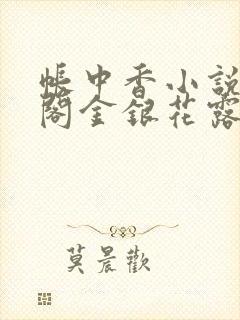 帳中香小說
閣金銀花露
莫晨歡